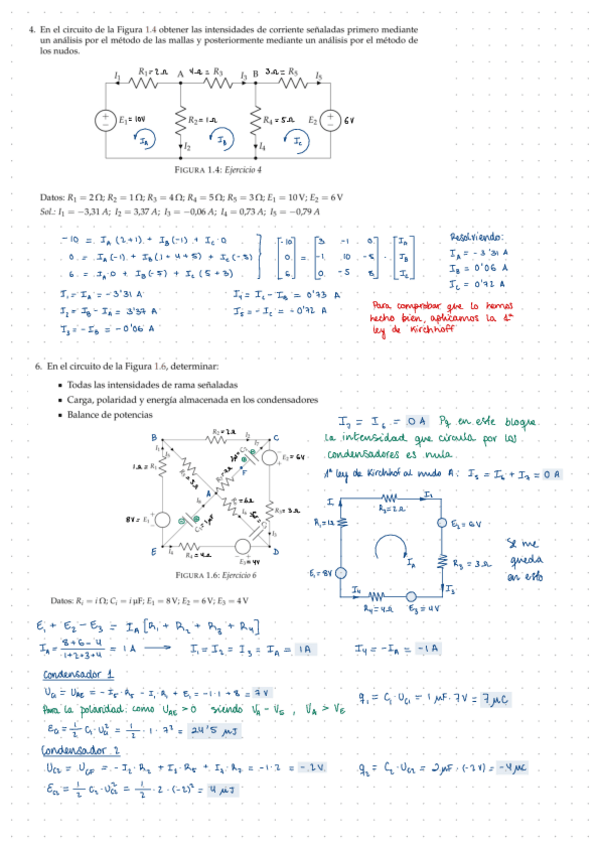 4. En el circuito de la Figura 1.4 obtener las intensidades de corriente señaladas primero mediante
un análisis por el método de las mallas y posteriormente mediante un análisis por el método de
los nudos.
I₁ R₁=2Ω A 4Ω=R₃ I₃ B 3Ω=R₅ I₅
E₁=10V R₂=1Ω R₄=5Ω E₂ 6V
I_A I_B I_C
I₂ I₄
FIGURA 1.4: Ejercicio 4
Datos: R₁ = 2 Ω; R₂ = 1 Ω; R₃ = 4 Ω; R₄ = 5 Ω; R₅ = 3 Ω; E₁ = 10 V; E₂ = 6 V
Sol.: I₁ = −3,31 A; I₂ = 3,37 A; I₃ = −0,06 A; I₄ = 0,73 A; I₅ = −0,79 A
-10 = I_A (2+1) + I_B(-1) + I_C·0
0 = I_A(-1) + I_B(1+4+5) + I_C(-5)
6 = I_A·0 + I_B(-5) + I_C(5+3)
[-10 0 6] = [3 -1 0 -1 10 -5 0 -5 8] · [I_A I_B I_C]
Resolviendo:
I_A = -3'31 A
I_B = 0'06 A
I_C = 0'72 A
I₁ = I_A = -3'31 A
I₂ = I_B - I_A = 3'37 A
I₃ = -I_B = -0'06 A
I₄ = I_C - I_B = 0'73 A
I₅ = -I_C = -0'72 A
Para comprobar que lo hemos
hecho bien, aplicamos la 1ª
ley de Kirchhoff
6. En el circuito de la Figura 1.6, determinar:
Todas las intensidades de rama señaladas
Carga, polaridad y energía almacenada en los condensadores
Balance de potencias
B R₂=2Ω I₂ C
1Ω=R₁ E₂=6V
A F
8V=E₁ R₃=3Ω
E I₄ R₄=4Ω E₃=4V D
FIGURA 1.6: Ejercicio 6
I₇ = I₆ = 0 A Pq en este bloque
la intensidad que circula por los
condensadores es nula.
1ª ley de Kirchhof al nudo A: I₅ = I₆ + I₇ = 0 A
I R₂=2Ω I₂
R₁=1Ω E₂=6V
I_A R₃=3Ω
E₁=8V I₃
I₄ R₄=4Ω E₃=4V
Se me
queda
en esto
Datos: Rᵢ = i Ω; Cᵢ = i µF; E₁ = 8 V; E₂ = 6 V; E₃ = 4 V
E₁ + E₂ - E₃ = I_A [R₁ + R₂ + R₃ + R₄]
I_A = 8+6-4 / 1+2+3+4 = 1 A → I₁ = I₂ = I₃ = I_A = 1A I₄ = -I_A = -1A
Condensador 1
U_C1 = U_AE = -I₅·R₅ - I₁·R₁ + E₁ = -1·1 + 8 = 7 V
q₁ = C₁·U_C1 = 1 µF·7V = 7 µC
Para la polaridad: como U_AE > 0 siendo V_A - V_E, V_A > V_E
E_C1 = 1/2 C₁·U_C1² = 1/2 · 1 · 7² = 24'5 µJ
Condensador 2
U_C2 = U_CF = -I₂·R₂ + I₅·R₅ + I₆·R₆ = -1·2 = -2V
q₂ = C₂·U_C2 = 2µF·(-2V) = -4µC
E_C2 = 1/2 C₂·U_C2² = 1/2 · 2 · (-2)² = 4 µJ